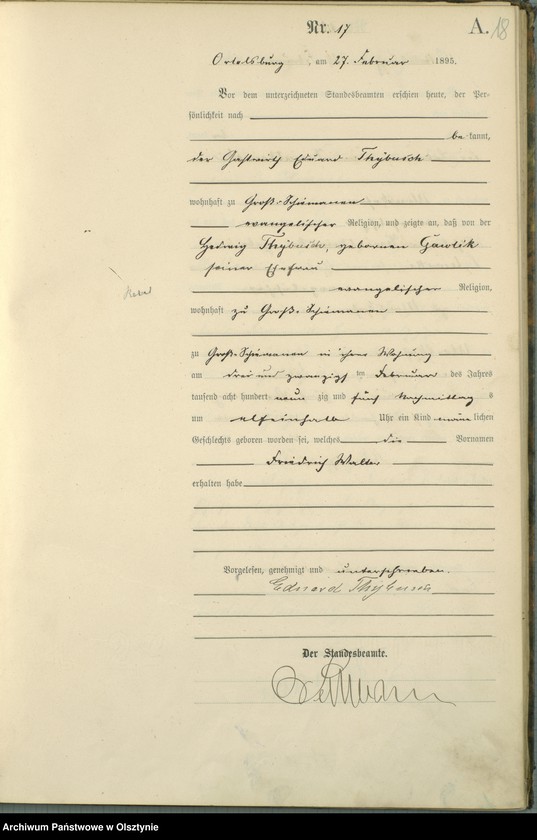 Nr. 17
A. 18
Ortelsburg, am 27. Februar 1895.
Vor dem unterzeichneten Standesbeamten erschien heute, der Per-
sönlichkeit nach
be kannt,
der Gastwirth Eduard Thybusch
wohnhaft zu Groß-Schiemanen
evangelischer Religion, und zeigte an, daß von der
Hedwig Thybusch, gebornen Gawlik
seiner Ehefrau
evangelischer Religion,
wohnhaft zu Groß-Schiemanen
zu Groß-Schiemanen in ihrer Wohnung
am drei und zwanzigsten Februar des Jahres
tausend acht hundert neun zig und fünf Nachmittag s
um elfeinhalb Uhr ein Kind männlichen
Geschlechts geboren worden sei, welches die Vornamen
Friedrich Walter
erhalten habe
Vorgelesen, genehmigt und unterschrieben.
Eduard Thybusch
Der Standesbeamte.
Archiwum Państwowe w Olsztynie